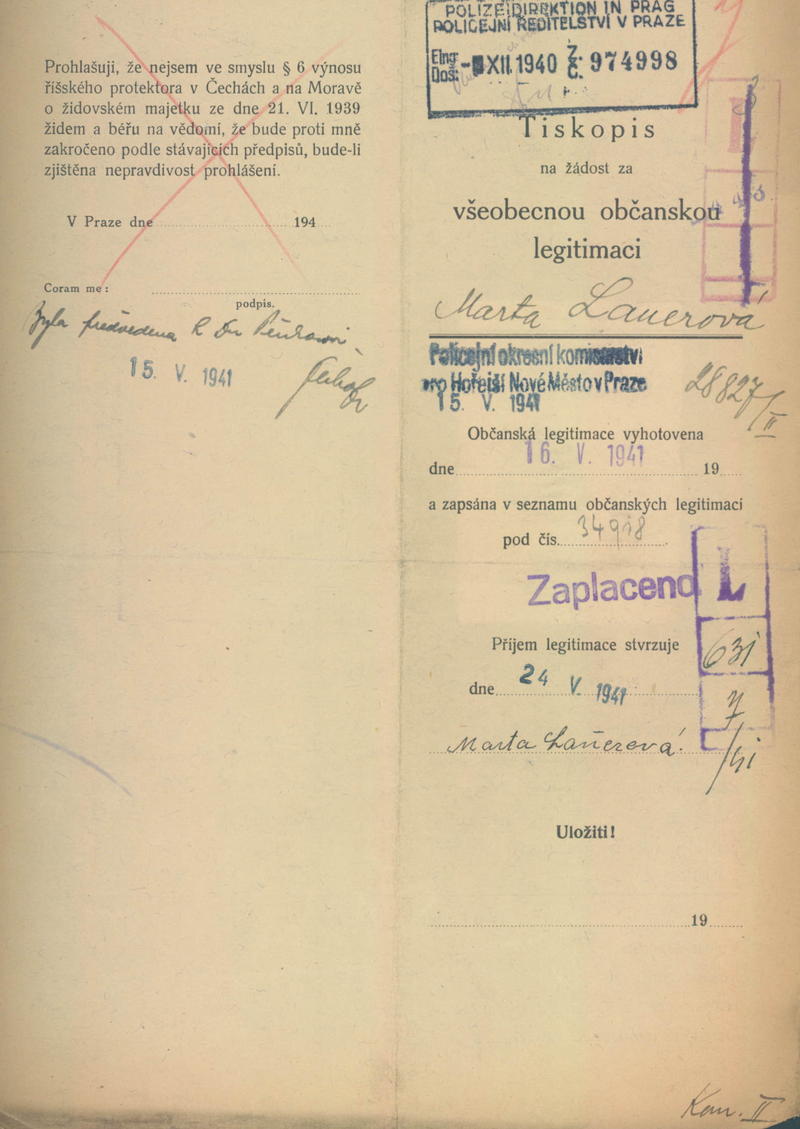 Prohlašuji, že nejsem ve smyslu § 6 výnosu
říšského protektora v Čechách a na Moravě
o židovském majetku ze dne 21. VI. 1939
židem a béřu na vědomí, že bude proti mně
zakročeno podle stávajících předpisů, bude-li
zjištěna nepravdivost prohlášení.
V Praze dne 194
Coram me:
podpis.
Byla předvedena k Dr.
15. V. 1941
POLIZEIDIREKTION IN PRAG
POLICEJNÍ ŘEDITELSTVÍ V PRAZE
Eing.
Doš. XII. 1940 Z. Č. 974998
Tiskopis
na žádost za
všeobecnou občanskou
legitimaci
Marta Lauerová
Policejní okresní komisařství
pro Hořejší Nové Město v Praze
15. V. 1941
28827/II
Občanská legitimace vyhotovena
16. V. 1941
dne 19
a zapsána v seznamu občanských legitimací
pod čís. 34918
Zaplaceno L
Příjem legitimace stvrzuje
631
dne 24 V. 1941
Marta Lauerová
Uložiti!
19
Kom. II